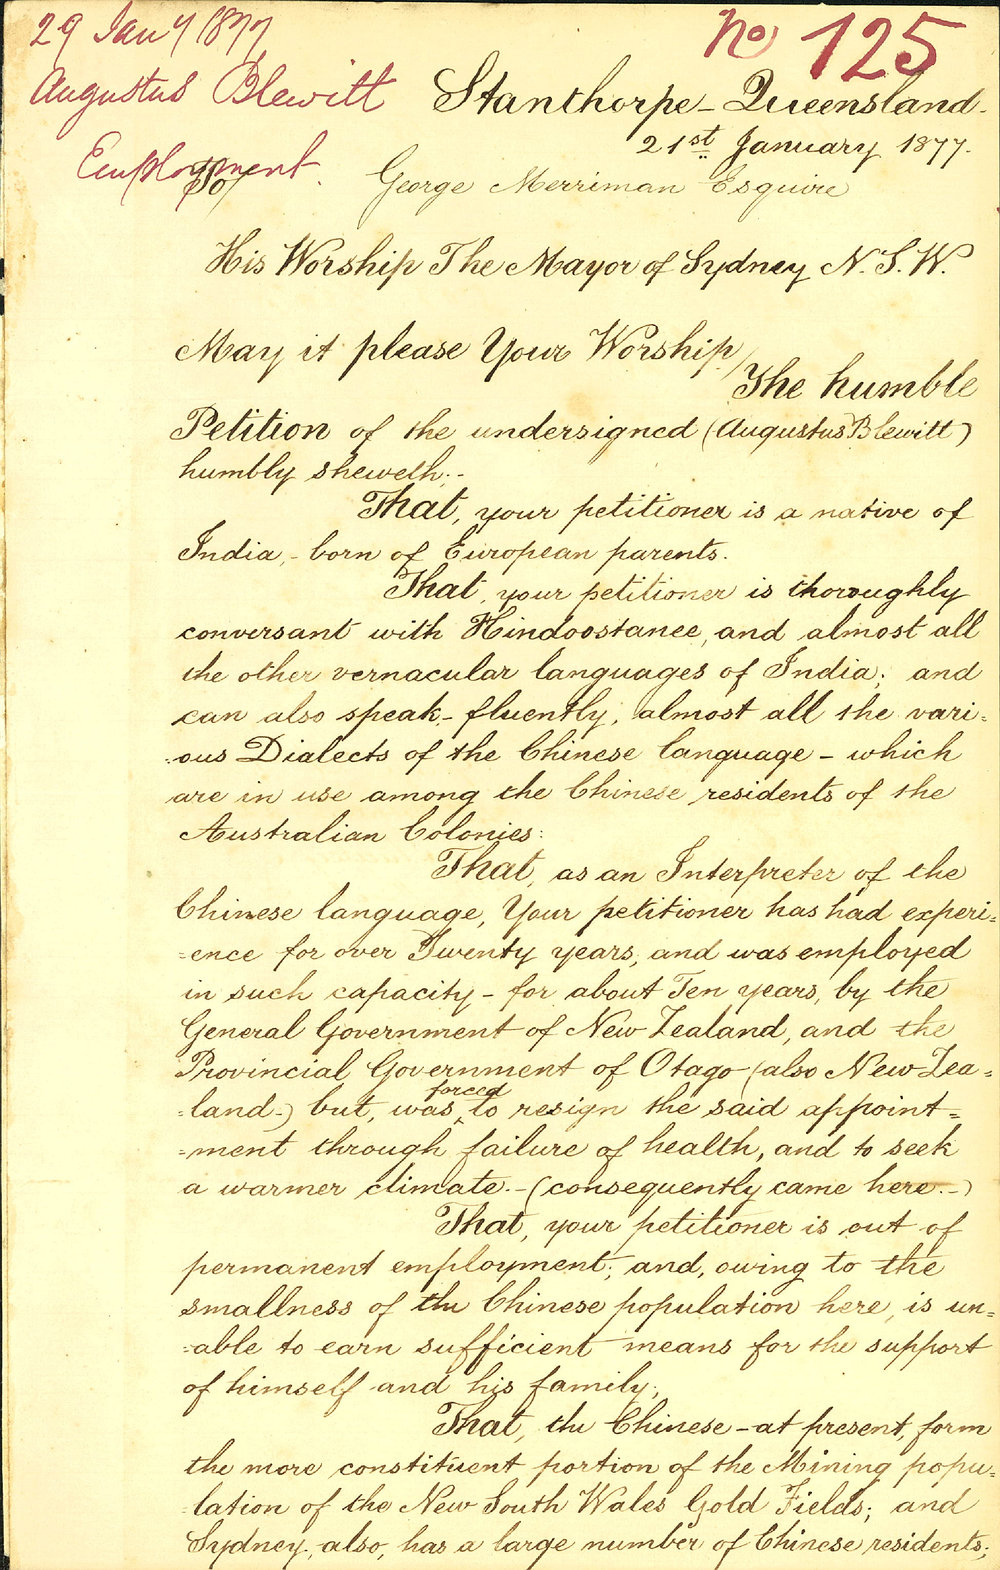 29 Jany 1877
No 125
Augustus Blewitt
Employment
Stanthorpe - Queensland -
21st January 1877.
To/ George Merriman Esquire
His Worship The Mayor of Sydney N. S. W.
May it please Your Worship/
The humble
Petition of the undersigned (Augustus Blewitt)
humbly sheweth:-
That, your petitioner is a native of
India, - born of European parents.
That, your petitioner is thoroughly
conversant with Hindoostanee, and almost all
the other vernacular languages of India; and
can also speak - fluently, almost all the vari=
=ous Dialects of the Chinese language - which
are in use among the Chinese residents of the
Australian Colonies:
That, as an Interpreter of the
Chinese language, Your petitioner has had experi=
=ence for over Twenty years, and was employed
in such capacity - for about Ten years, by the
General Government of New Zealand, and the
Provincial Government of Otago (also New Zea=
=land -) but, was forced to resign the said appoint=
=ment through failure of health, and to seek
a warmer climate. - (consequently came here. -)
That, your petitioner is out of
permanent employment; and, owing to the
smallness of the Chinese population here, is un=
=able to earn sufficient means for the support
of himself and his family;
That, the Chinese - at present, form
the more constituent portion of the Mining popu=
lation of the New South Wales Gold Fields; and
Sydney, also, has a large number of Chinese residents;